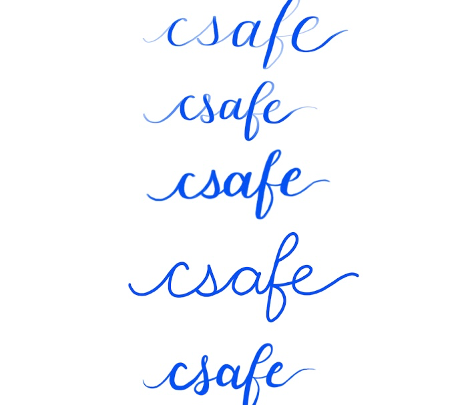 csafe
csafe
csafe
csafe
csafe